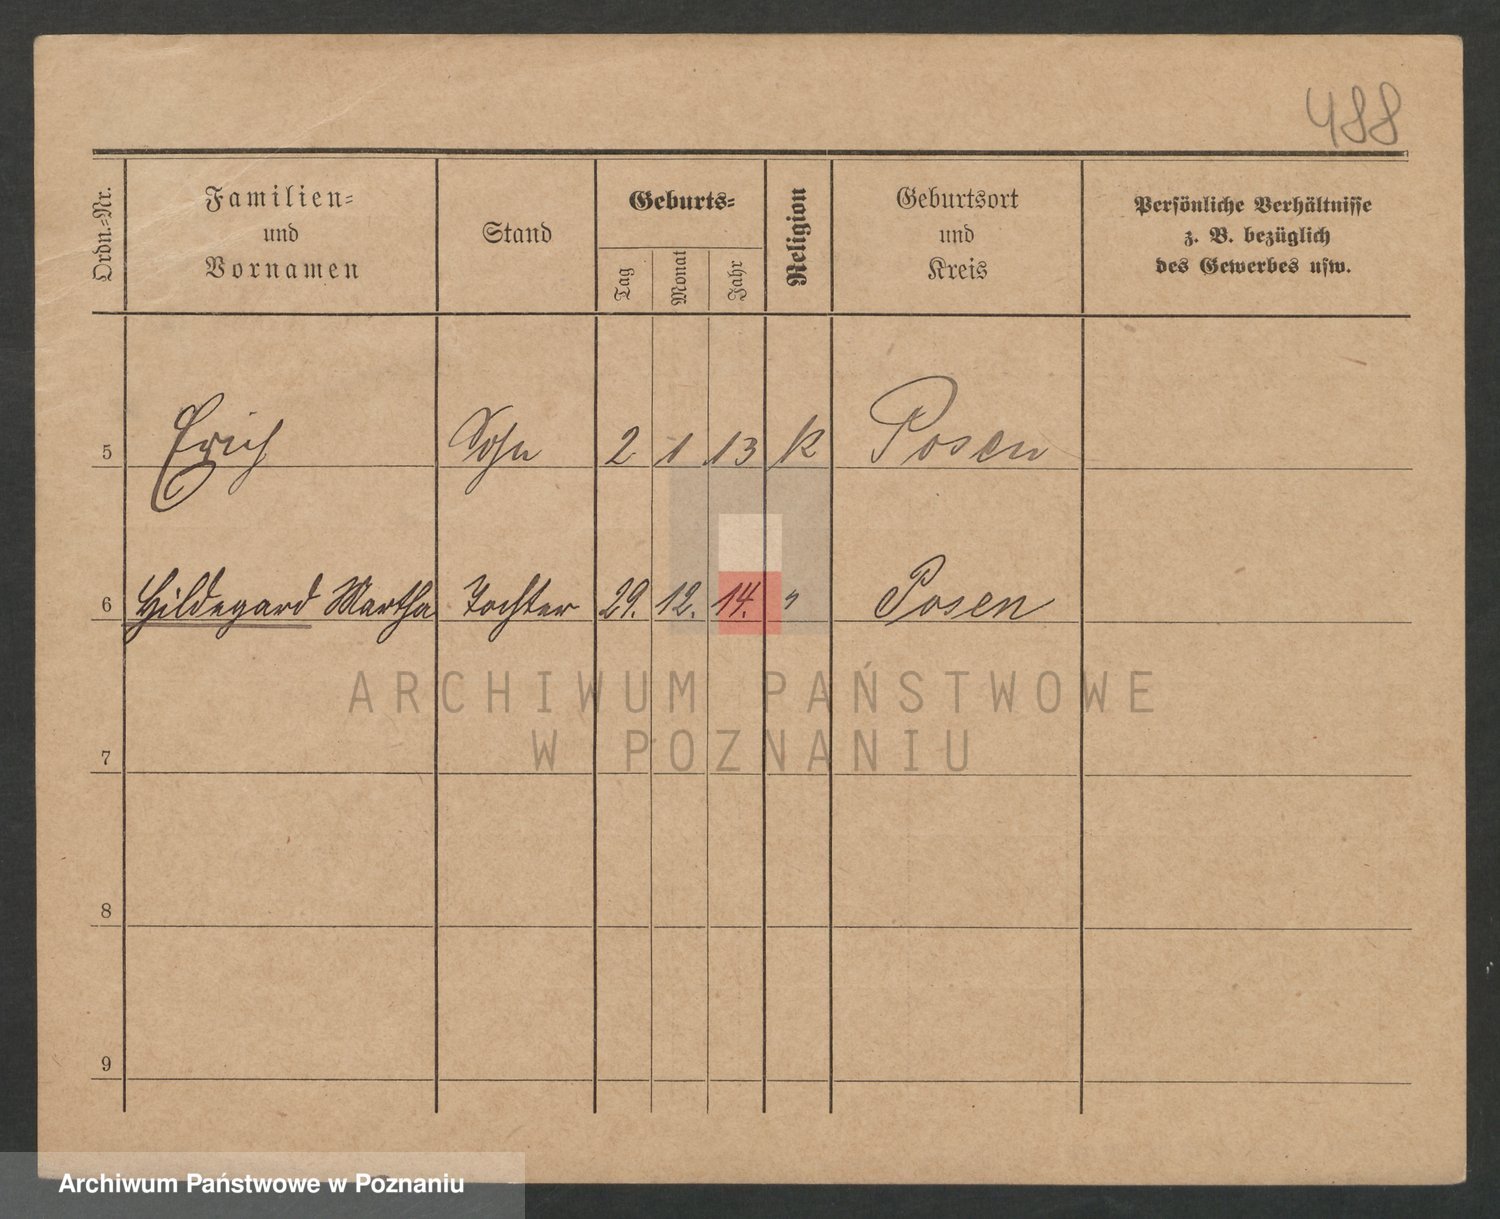 488
Ordn.-Nr.
Familien-
und
Vornamen
Stand
Geburts-
Tag
Monat
Jahr
Religion
Geburtsort
und
Kreis
Persönliche Verhältnisse
z. B. bezüglich
des Gewerbes usw.
5 Erich Sohn 2 1 13 k Posen
6 Hildegard Martha Tochter 29. 12. 14. " Posen
ARCHIWUM PAŃSTWOWE
W POZNANIU
7
8
9
Archiwum Państwowe w Poznaniu